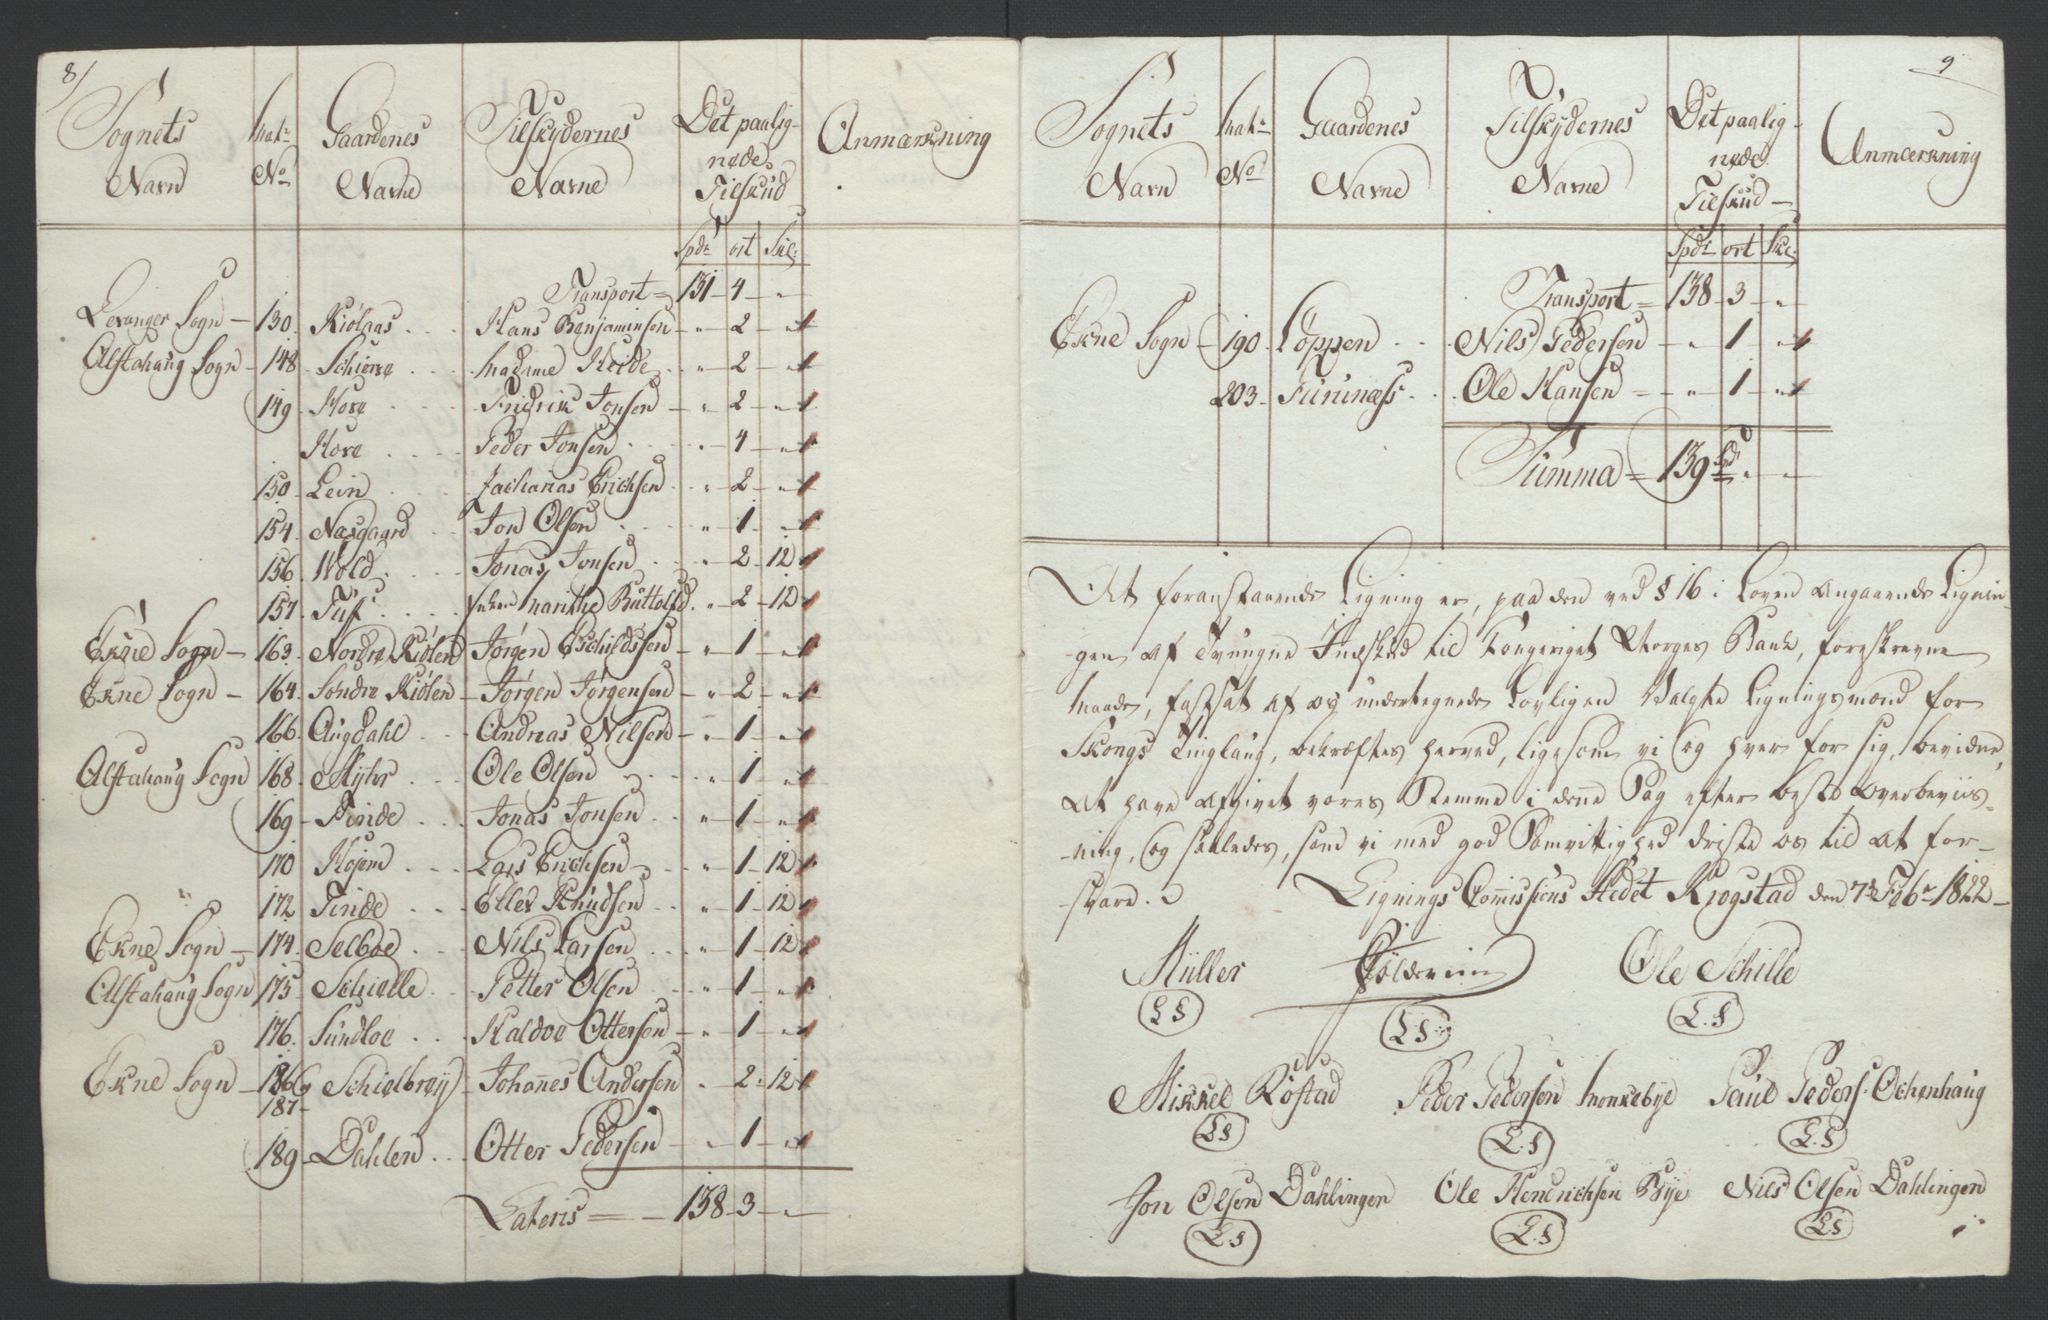 8/
Sognets Navn | Matr. No | Gaardenes Navne | Tilskydernes Navne | Det paalignede Tilskud | Anmærkning
Spdr ort Skil:
Transport = 131 - 4 - "
Levanger Sogn - 130. Kiölaas . . . Hans Benjaminsen - " - 2 - "
Alstahaug Sogn - 148 - Schierve . . . Madame Heide . . " - 2 - "
149 - Hove . . . Fridrik Jonsen - " - 2 - "
Hove . . . . Peder Jonsen . . . . " - 4 - "
150 - Lein . . . Zacharias Erichsen . . " - 2 - "
154. Næsgaard . . Jon Olsen . . . . " - 1 - "
156. Wold . . . Jonas Jonsen . . . " - 2 - 12
157. Tuf . . . . Marithe Buttolfd. " - 2 - 12
Ekne Sogn - 163. Nordre Kiölen Jörgen Eschildsen - " - 1 - "
Ekne Sogn - 164. Söndre Kiölen - Jörgen Jörgensen - " - 2 - "
166. Augdahl . . . Andreas Nilsen - " - 1 - "
Alstahaug Sogn 168. Mÿhr . . . Ole Olsen . . . . " - 1 - "
169 - Tinde . . . Jonas Jonsen . . . " - 1 - "
170 Hojem . . . Lars Erichsen . . " - 1 - 12
172 Tinde . . . Eller Knudsen . . " - 1 - 12
Ekne Sogn - 174. Selboe . . . Nils Larsen . . . " - 1 - 12
Alstahaug Sogn 175 Schielle . . . Petter Olsen . . . " - 1 - "
176. Sundloe . . Haldoe Ottersen - " - 1 - "
Ekne Sogn - 186 og Schielbreÿ - Johannes Andersen " - 2 - 12
187 -
189 - Dahlen . . . Otter Pedersen - " - 1 - "
Lateris = - 138 - 3 - "
9
Sognets Navn | Matr. No | Gaardenes Navne | Tilskydernes Navne | Det paalignede Tilskud - | Anmærkning
Spdr ort Skil:
Transport = 138 - 3 - "
Ekne Sogn - 190 Loppen . . . Nils Pedersen - " - 1 - "
203 - Furuness . . . Ole Hansen = - " - 1 - "
Summa = 139 Spd " - "
At foranstaaende Ligning er, paa den ved § 16 i Loven angaaende Lignin-
gen af Tvungne Indskud til Kongeriget Norges Bank, foreskrevne
Maade, fastsat af os undertegnede Lovligen Valgte Ligningsmænd for
Skongs Tinglaug, bekræftes herved, ligesom vi og hver for sig, bevidne,
at have afgivet vores Stemme i denne Sag efter beste Overbeviis-
-ning, og saaledes, som vi med god Samvittighed driste os til at for-
-svare. Lignings Commissions Stedet Rjogstad den 7de Febr 1822 -
Müller Ole Schille
LS LS L.S
Mikkel Röstad Peder Pedersen Munkebye Paul Peders: Ochenhaug
LS L.S L.S
Jon Olsen Dahlingen Ole Hendrichsen Bÿe Nils Olsen Dahlingen
LS L.S LS